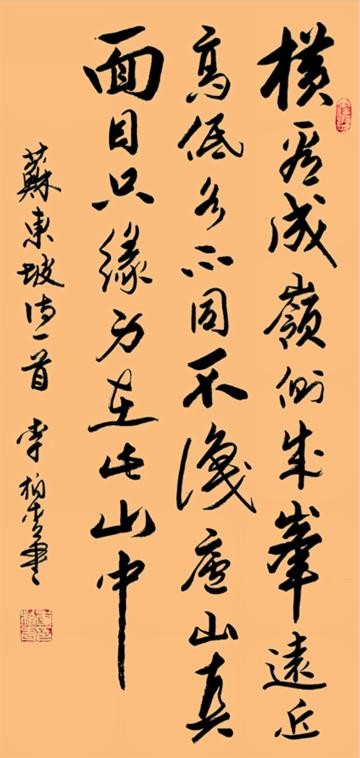 橫看成嶺側成峯遠近
高低各不同不識廬山真
面目只緣身在此山中
蘇東坡詩一首 李柏書